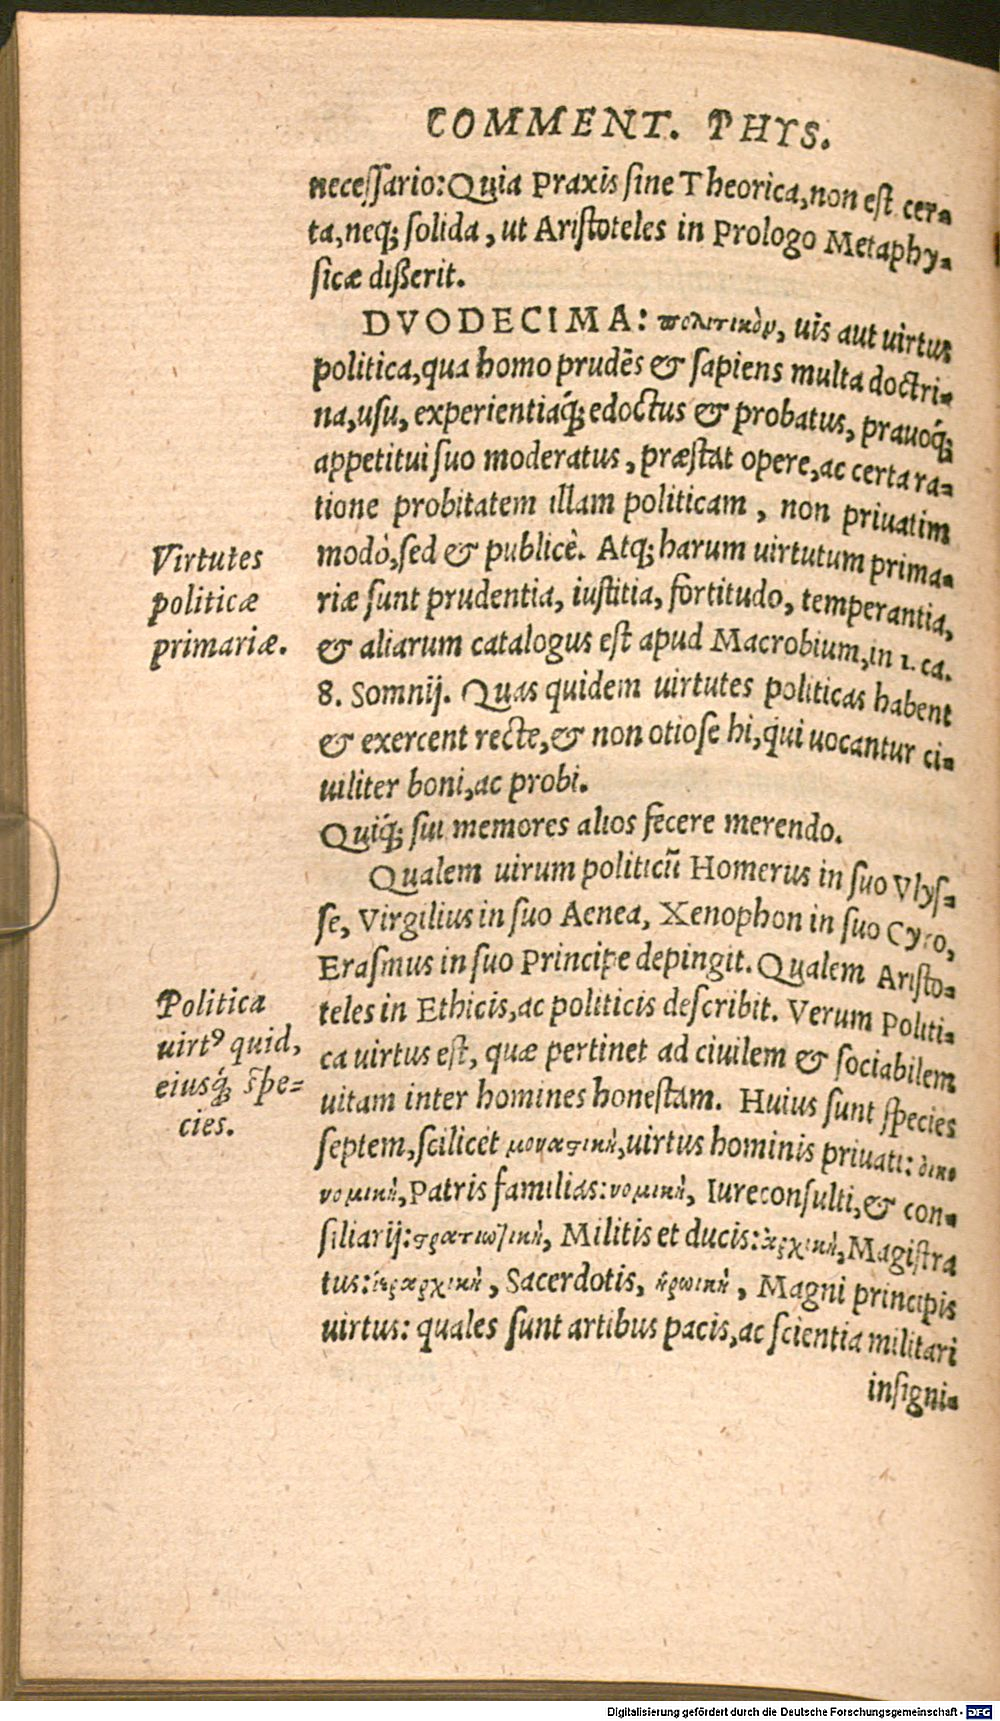 COMMENT. PHYS.
necessario: Quia Praxis sine Theorica, non est cer-
ta, neq; solida, ut Aristoteles in Prologo Metaphy-
sicæ dißerit.
DVODECIMA: πολιτικὸν, uis aut uirtus
politica, qua homo prudēs & sapiens multa doctri-
na, usu, experientiaq́; edoctus & probatus, prauoq́;
appetitui suo moderatus, præstat opere, ac certa ra-
tione probitatem illam politicam, non priuatim
modò, sed & publicè. Atq; harum uirtutum prima-
Virtutes
politicæ
primariæ.
riæ sunt prudentia, iustitia, fortitudo, temperantia,
& aliarum catalogus est apud Macrobium, in 1. ca.
8. Somnij. Quas quidem uirtutes politicas habent
& exercent recte, & non otiose hi, qui uocantur ci-
uiliter boni, ac probi.
Quiq́; sui memores alios fecere merendo.
Qualem uirum politicū Homerus in suo Vlys-
se, Virgilius in suo Aenea, Xenophon in suo Cyro,
Erasmus in suo Principe depingit. Qualem Aristo-
teles in Ethicis, ac politicis describit. Verum Politi-
Politica
uirtꝰ quid,
eiusq́; spe-
cies.
ca uirtus est, quæ pertinet ad ciuilem & sociabilem
uitam inter homines honestam. Huius sunt species
septem, scilicet μοναστικὴ, uirtus hominis priuati: ὀικο
νομικὴ, Patris familias: νομικὴ, Iureconsulti, & con-
siliarij: στρατιωτικὴ, Militis et ducis: ἀρχικὴ, Magistra
tus: ἱεραρχικὴ, Sacerdotis, ἡρωικὴ, Magni principis
uirtus: quales sunt artibus pacis, ac scientia militari
insigni-
Digitalisierung gefördert durch die Deutsche Forschungsgemeinschaft - DFG